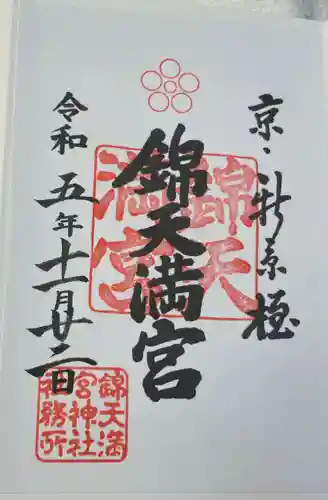 京・新京極
錦天満宮
錦天
満宮
令和五年十一月廿二日
錦天満
宮神社
務所